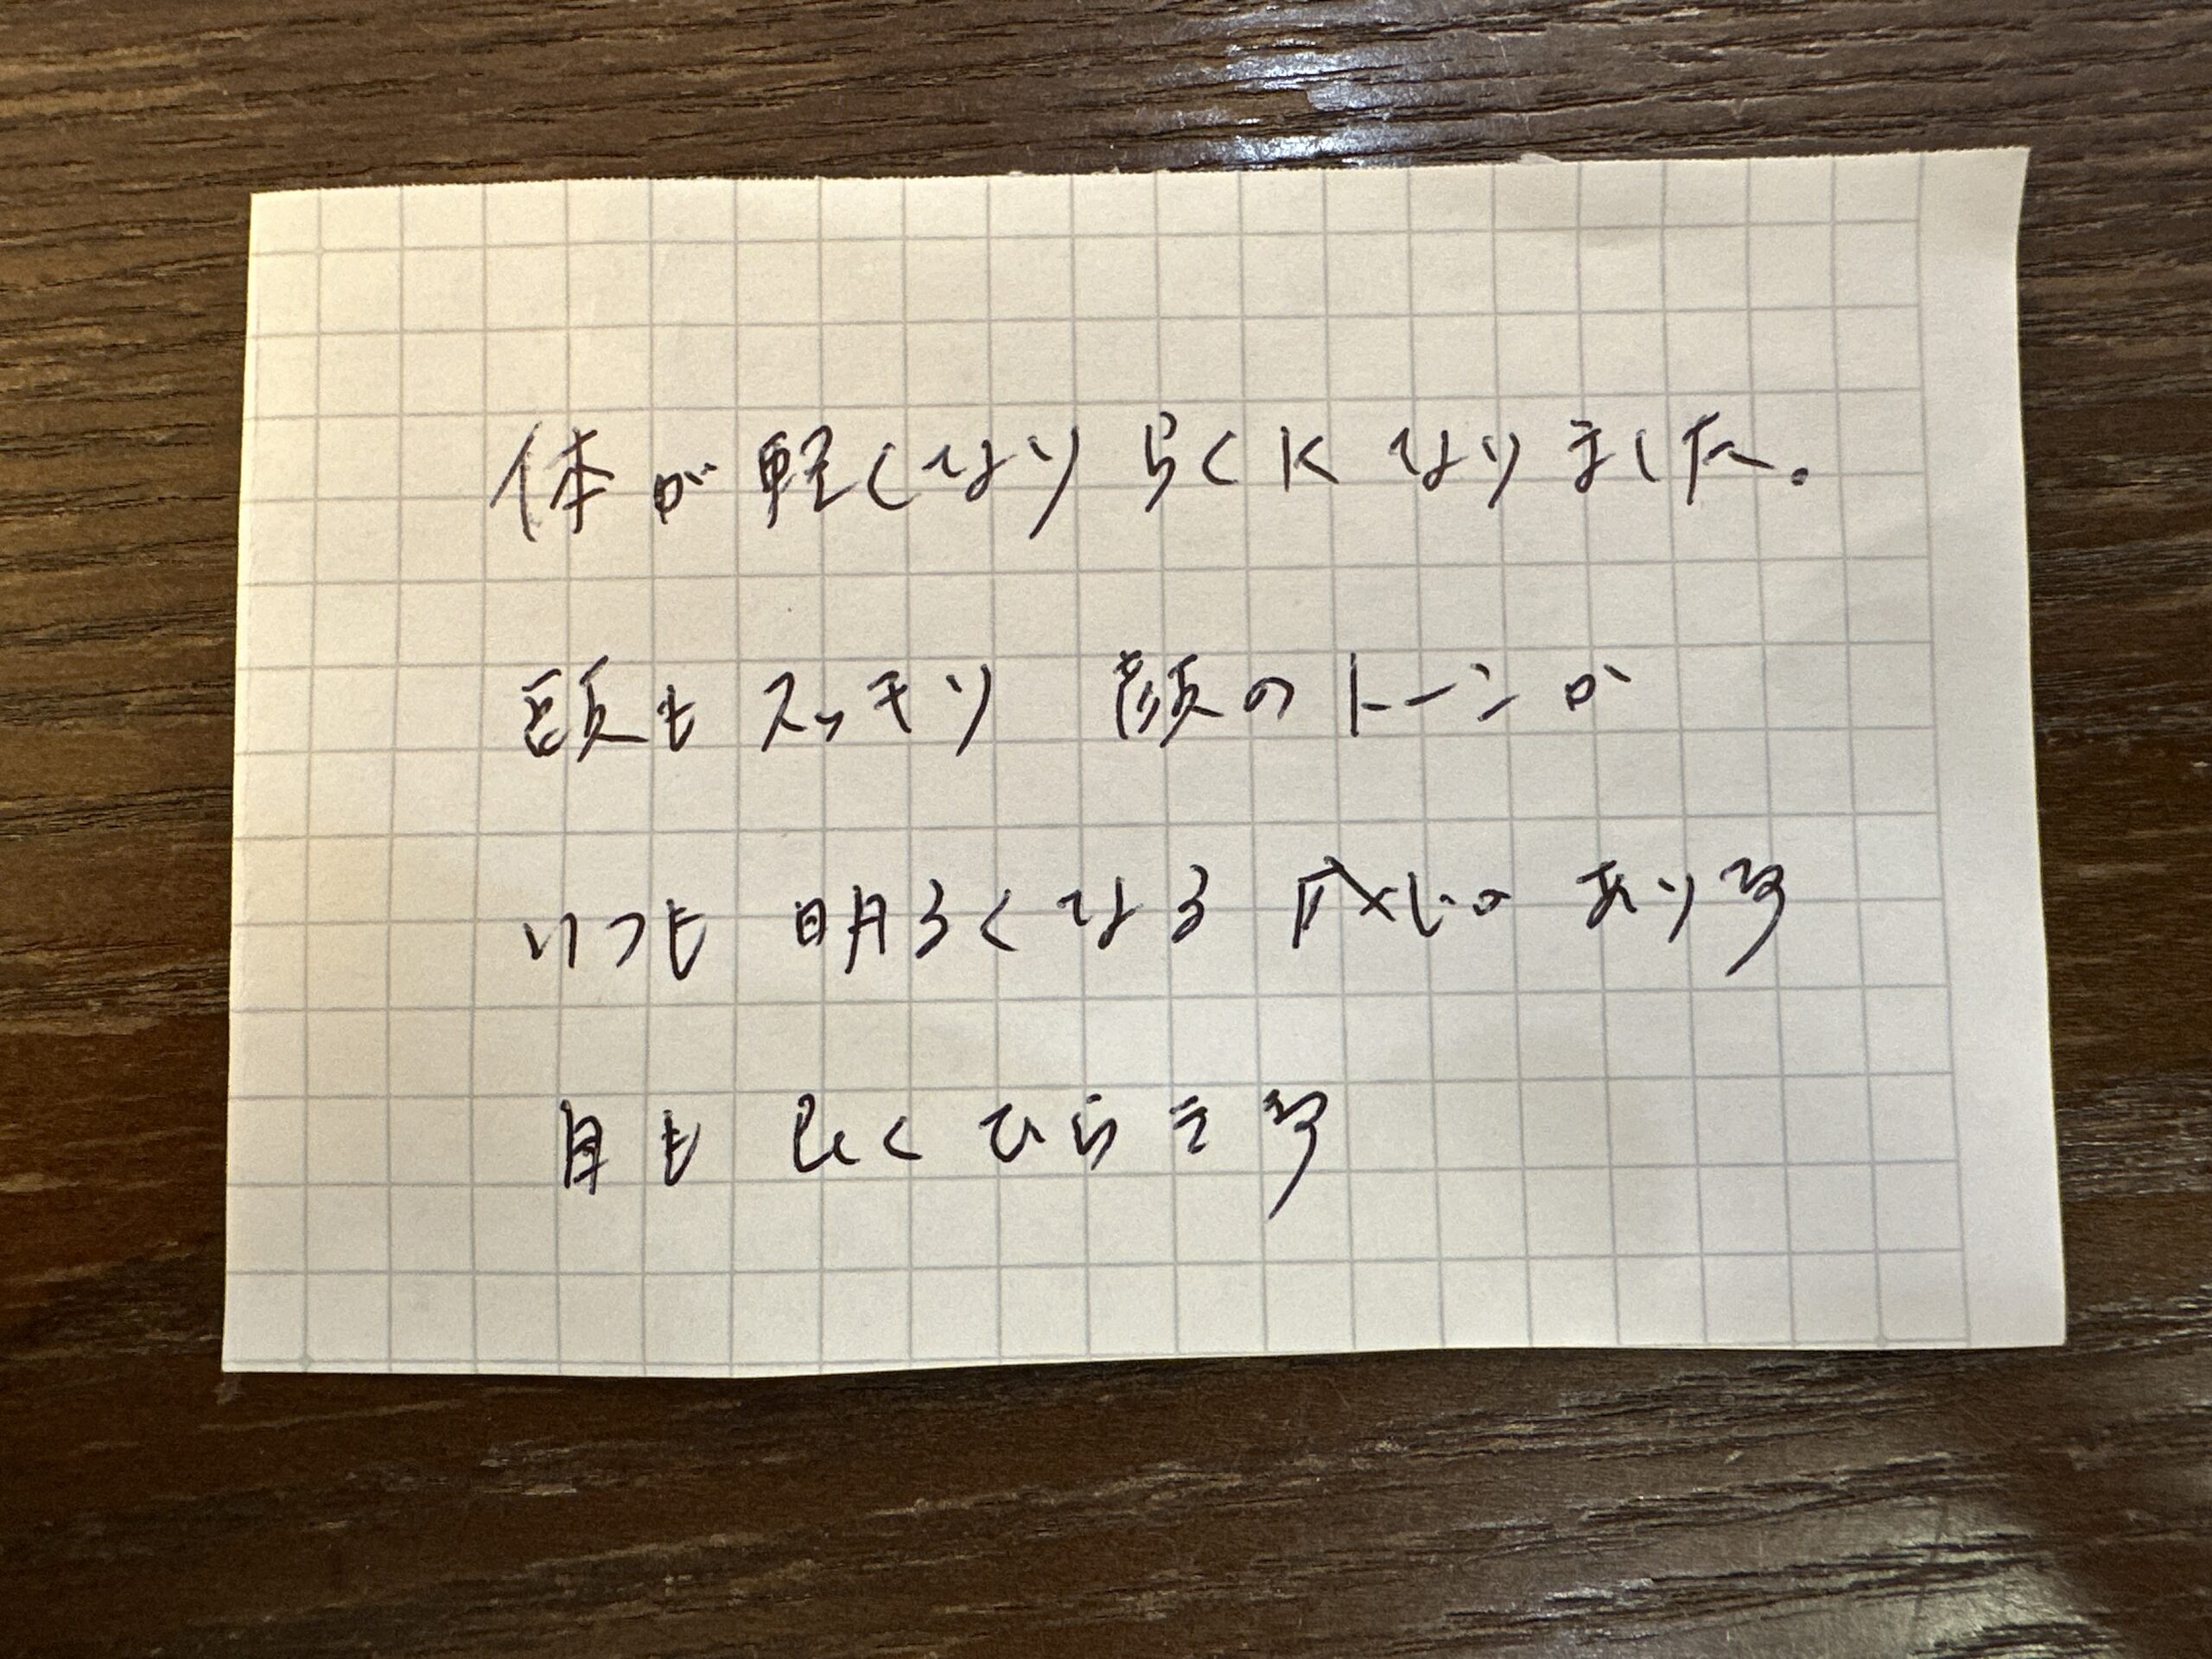 体が軽くなりらくになりました。
頭もスッキリ 顔のトーンが
いつも明るくなる 感じがあります
目も良くひらきます